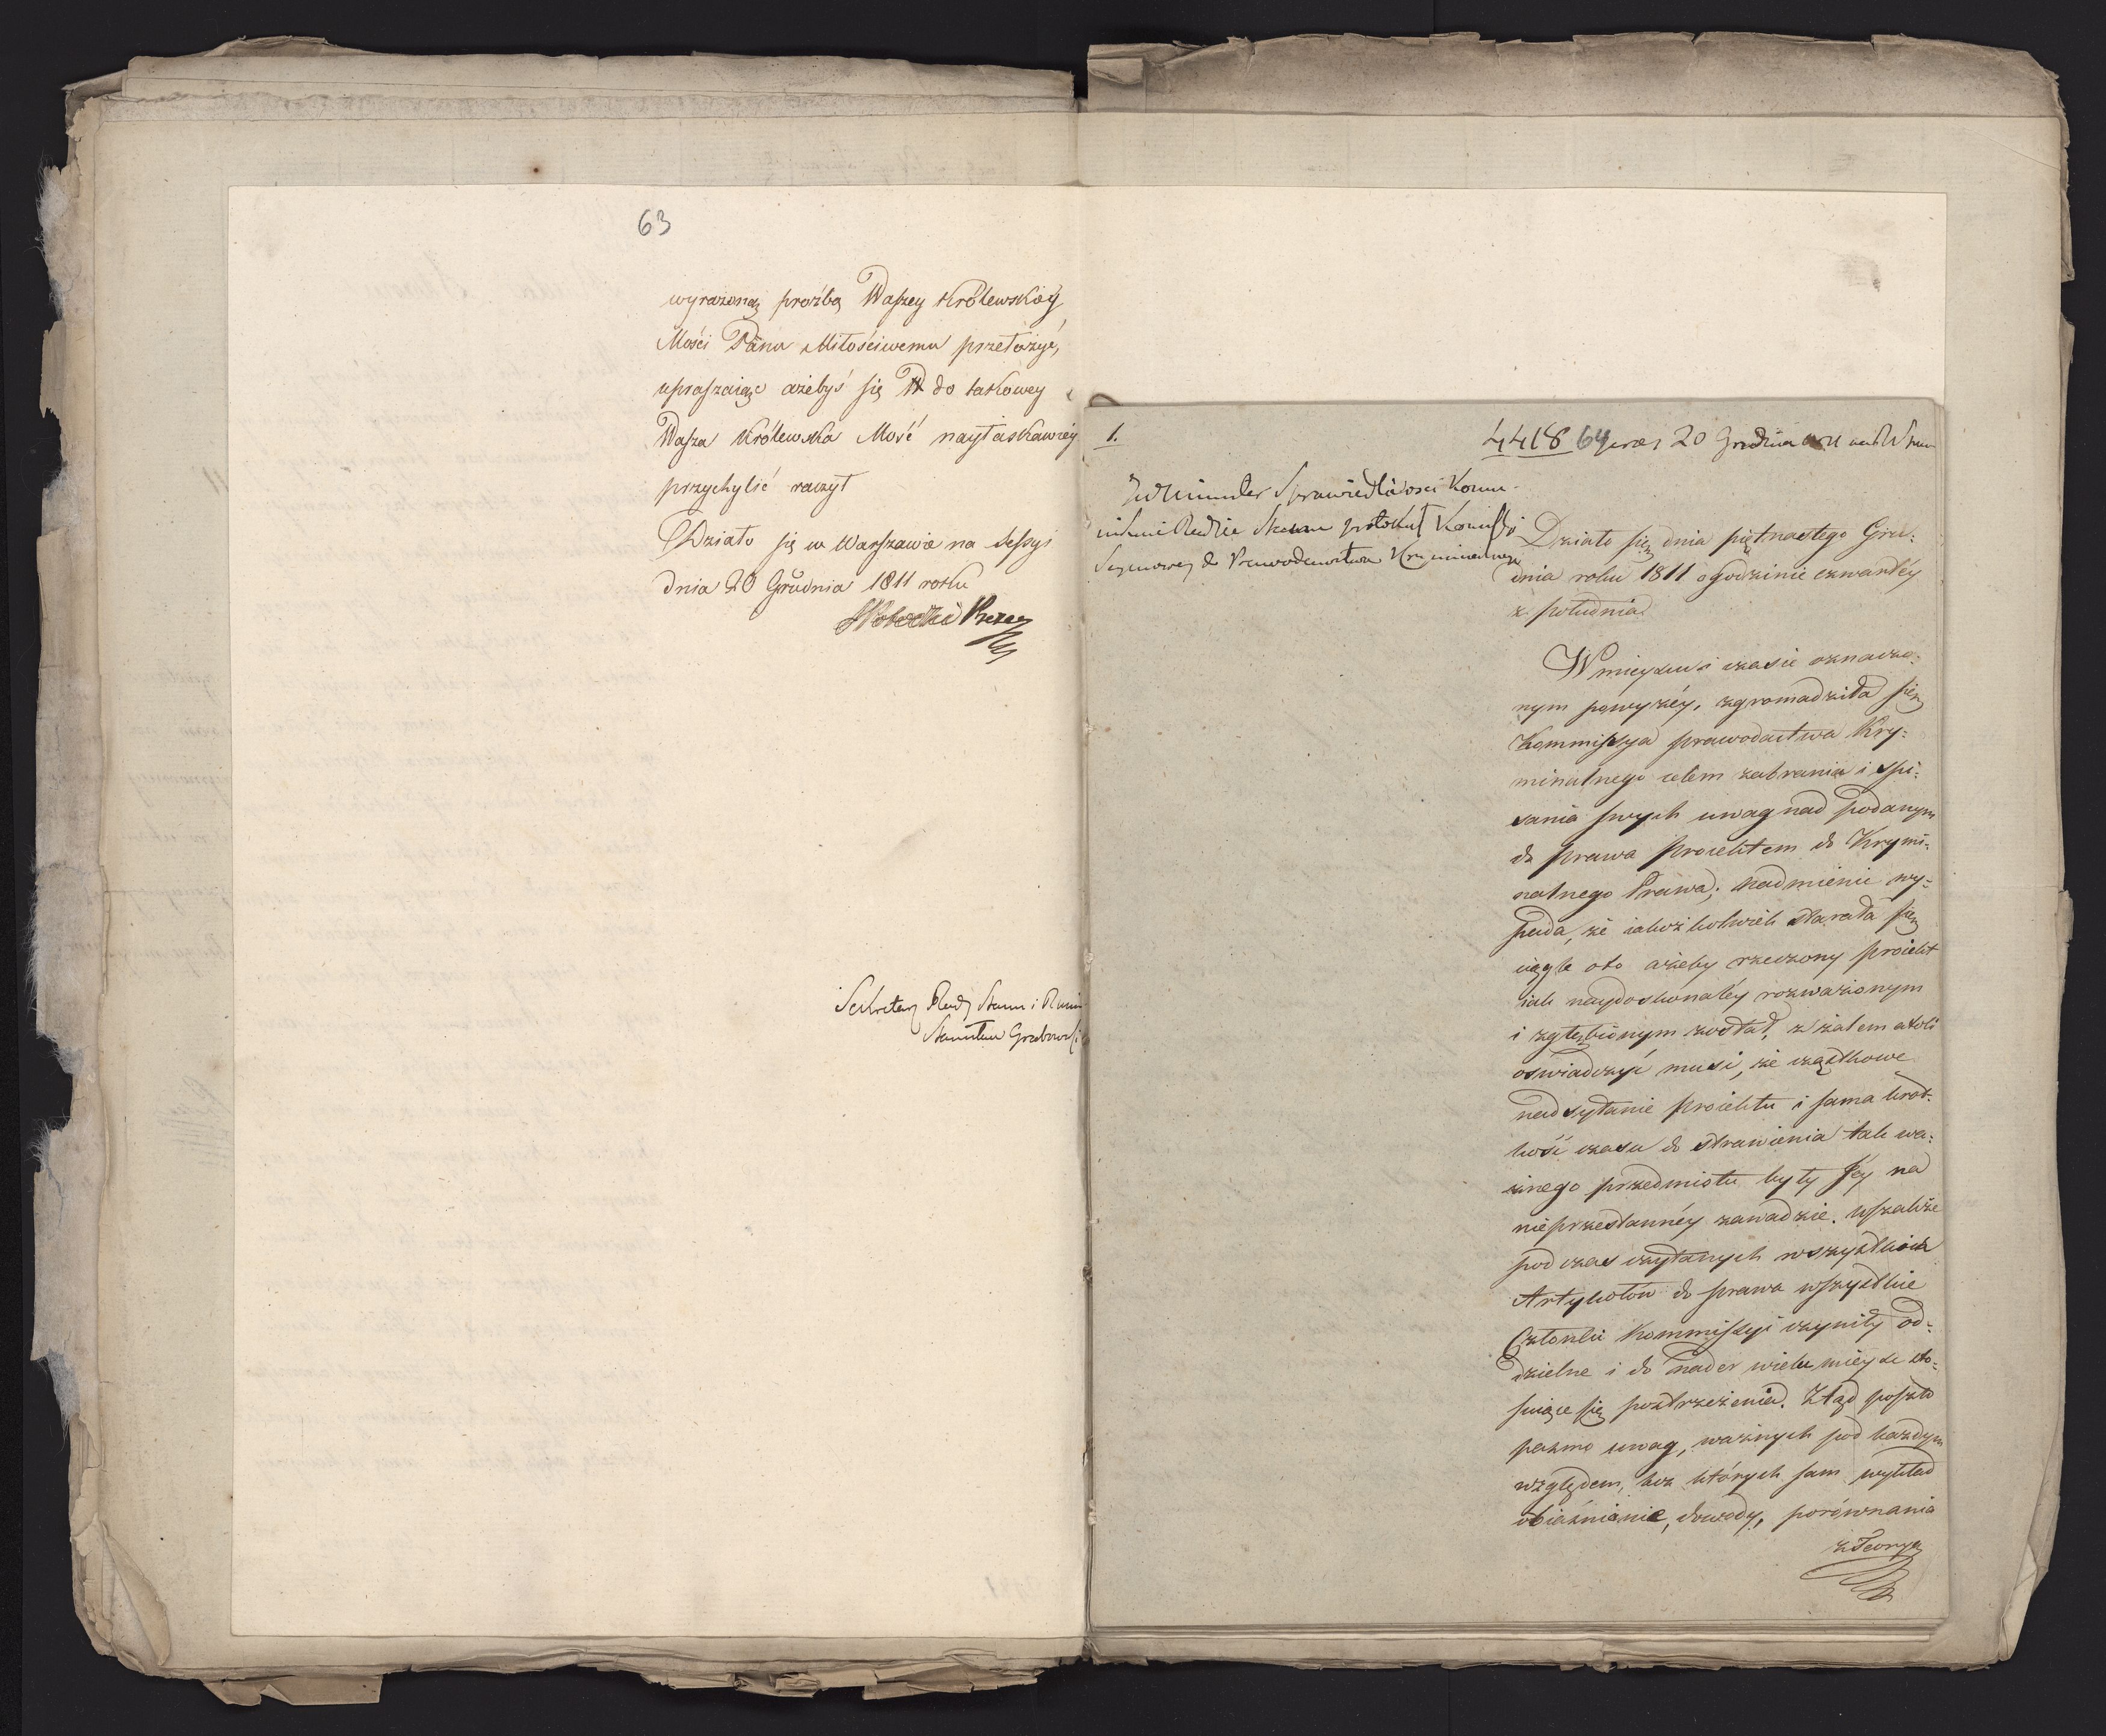 63
wyrażoną proźbę Waszey Królewskiéy
Mości Pana Miłościwemu przełożyć,
upraszaiąc ażebyś się do takowey
Wasza Królewska Mość nayłaskawiéy
przychylić raczył
Działo się w Warszawie na Sessyi
dnia 20 Grudnia 1811 roku
Prezes
Sekretarz Rady Stanu i
Stanisław Grabowski
1.
4418 64 20 Grudnia
JW Minister Sprawiedliwosci Kommu-
nikuie Radzie Stanu protokuł Kommissyi
Seymowey do Prawodawstwa Kryminalnego
Działo się dnia piętnastego Gru:
dnia roku 1811 o godzinie czwartéy
z południa
W mieyscu i czasie oznaczo:
nym powyżéy, zgromadziła się
Kommissya prawodactwa Kry:
minalnego celem zebrania i spi:
sania swych uwag nad podanym
do prawa Proiektem do Krymi:
nalnego Prawa; nadmienic wy:
pada, że iakożkolwiek starała się
ciągle oto ażeby rzeczony proiekt
iak naydoskonaléy rozważonym
i zgłębionym został, z żalem atoli
oświadczyć musi, że cząstkowe
nadsyłanie proiektu i sama krot:
kość czasu do strawienia tak wa:
żnego przedmiotu były Jéy na
nieprzestannéy zawadzie. Wszakże
podczas czytanych wszystkich
Artykołów do prawa wszystkie
Członki Kommissyi czyniły od:
dzielne i do nader wielu mieysc sto:
suiące się postrzeżenia. Ztąd poszło
pasmo uwag, ważnych pod każdym
względem, bez których sam wykład
obiaśnienie, dowody, porównania
z Teoryą